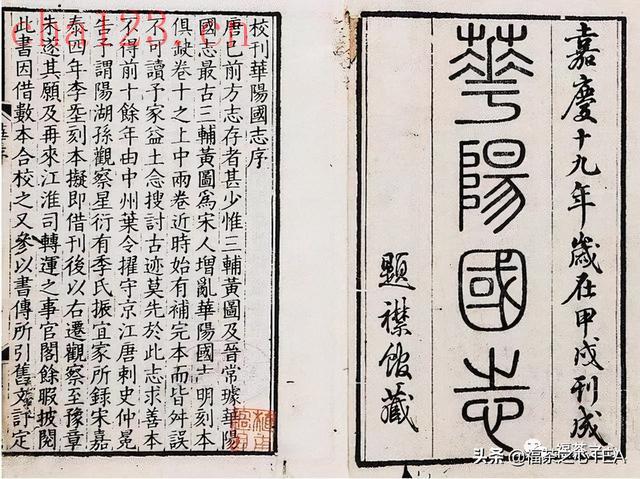 嘉慶十九年歲在甲戌刊成
華陽國志
題襟館藏
校刊華陽國志序
唐已前方志存者甚少惟三輔黃圖及晉常璩華陽
國志最古三輔黃圖爲宋人增亂華陽國志明刻本
俱缺卷十之上中兩卷近時始有補完本而皆舛誤
不可讀予家益土念搜討古迹莫先於此志求善本
不得前十餘年由中州葉令擢守京江唐刺史仲冕
告予謂陽湖孫觀察星衍有季氏振宜家所錄宋嘉
泰四年李𡌴刻本擬即借刊後以右遷觀察至豫章
未遂其願及再來江淮司轉運之事官閣餘暇披閱
此書因借數本合校之又參以書傳所引舊文定
cha123.cn
头条 @福茶之心TEA